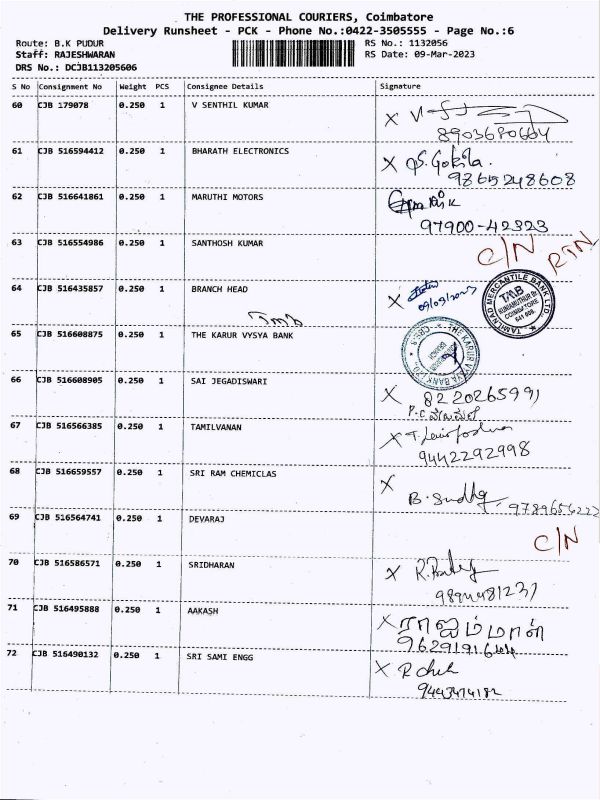 THE PROFESSIONAL COURIERS, Coimbatore
Delivery Runsheet - PCK - Phone No.:0422-3505555 - Page No.:6
Route: B.K PUDUR RS No.: 1132056
Staff: RAJESHWARAN RS Date: 09-Mar-2023
DRS No.: DCJB113205606
S No Consignment No Weight PCS Consignee Details Signature
60 CJB 179078 0.250 1 V SENTHIL KUMAR X
8903680664
61 CJB 516594412 0.250 1 BHARATH ELECTRONICS X S. Gokila.
9865248608
62 CJB 516641861 0.250 1 MARUTHI MOTORS
97900-42323
63 CJB 516554986 0.250 1 SANTHOSH KUMAR C/N RTN
64 CJB 516435857 0.250 1 BRANCH HEAD X
09/03/2023
TAMILNAD MERCANTILE BANK LTD
TMB
KUNIAMUTHUR BR
COIMBATORE
641 008.
TMB
65 CJB 516608875 0.250 1 THE KARUR VYSYA BANK
THE KARUR VYSYA BANK LTD.,
66 CJB 516608905 0.250 1 SAI JEGADISWARI X 8220265991
67 CJB 516566385 0.250 1 TAMILVANAN X
9442292998
68 CJB 516659557 0.250 1 SRI RAM CHEMICLAS X
B. Sudha 9789656222
69 CJB 516564741 0.250 1 DEVARAJ
C/N
70 CJB 516586571 0.250 1 SRIDHARAN X
9894481231
71 CJB 516495888 0.250 1 AAKASH X ராஜம்மாள்
72 CJB 516490132 0.250 1 SRI SAMI ENGG X
9443474182